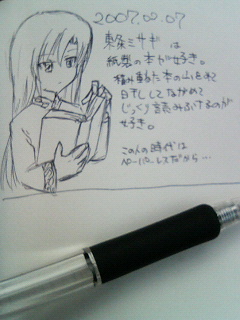 2007.00.07
東条ミサギは
紙製の本が好き。
積み重ねた本の山を
日干ししてながめて
じっくり読みふけるのが
好き。
この人の時代は
ペーパーレスだから…